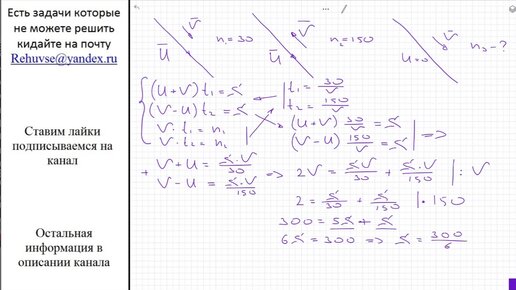 Есть задачи которые
не можете решить
кидайте на почту
Rehuvse@yandex.ru
Ставим лайки
подписываемся на
канал
Остальная
информация в
описании канала
... /
U V n₁=30
U V n₂=150
U=0 V n₃-?
(U+V)t₁=S
(V-U)t₂=S
V·t₁=n₁
V·t₂=n₂
t₁=30/V
t₂=150/V
(U+V)30/V=S
(V-U)150/V=S | =>
+ V+U=S·V/30
V-U=S·V/150
=> 2V=SV/30+S·V/150 |:V
2=S/30+S/150 |·150
300=5S+S
6S=300 => S=300/6